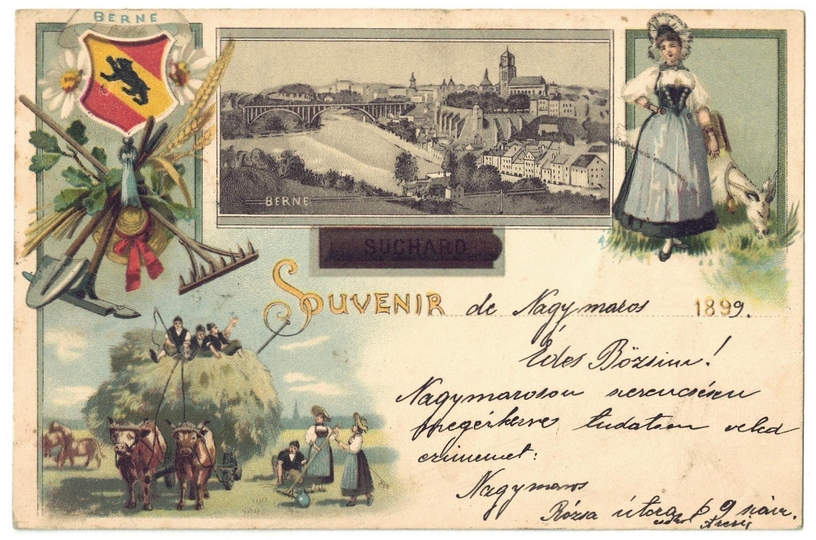 BERNE
BERNE
SUCHARD
SOUVENIR de Nagymaros 1899.
Édes Bözsim!
Nagymaroson szerencsésen
megérkezve tudatom veled
czimemet:
Nagymaros
Rózsa útcza 9 szám.